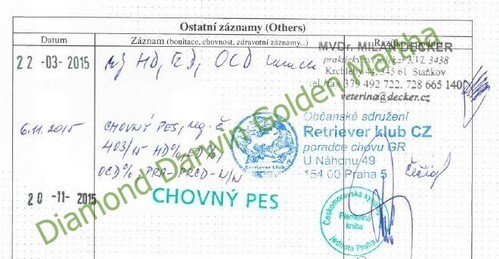 Ostatní záznamy (Others)
Datum
Záznam (bonitace, chovnost, zdravotní záznamy...)
22 -03- 2015
HD, ED, OCD
MVDr. MILAN DECKER
3438
Krchleby 42, 345 61 Staňkov
tel. 379 492 722, 728 665 140
veterina@decker.cz
6.11.2015
CHOVNÝ PES,
403/15 HD
OCD PRA-PRCD-N/N
Občanské sdružení
Retriever klub CZ
poradce chovu GR
U Náhonu/49
154 00 Praha 5
20 -11- 2015
CHOVNÝ PES
Českomoravská
Plemenná
kniha
jednota Praha
Diamond Darwin Golden Mantha